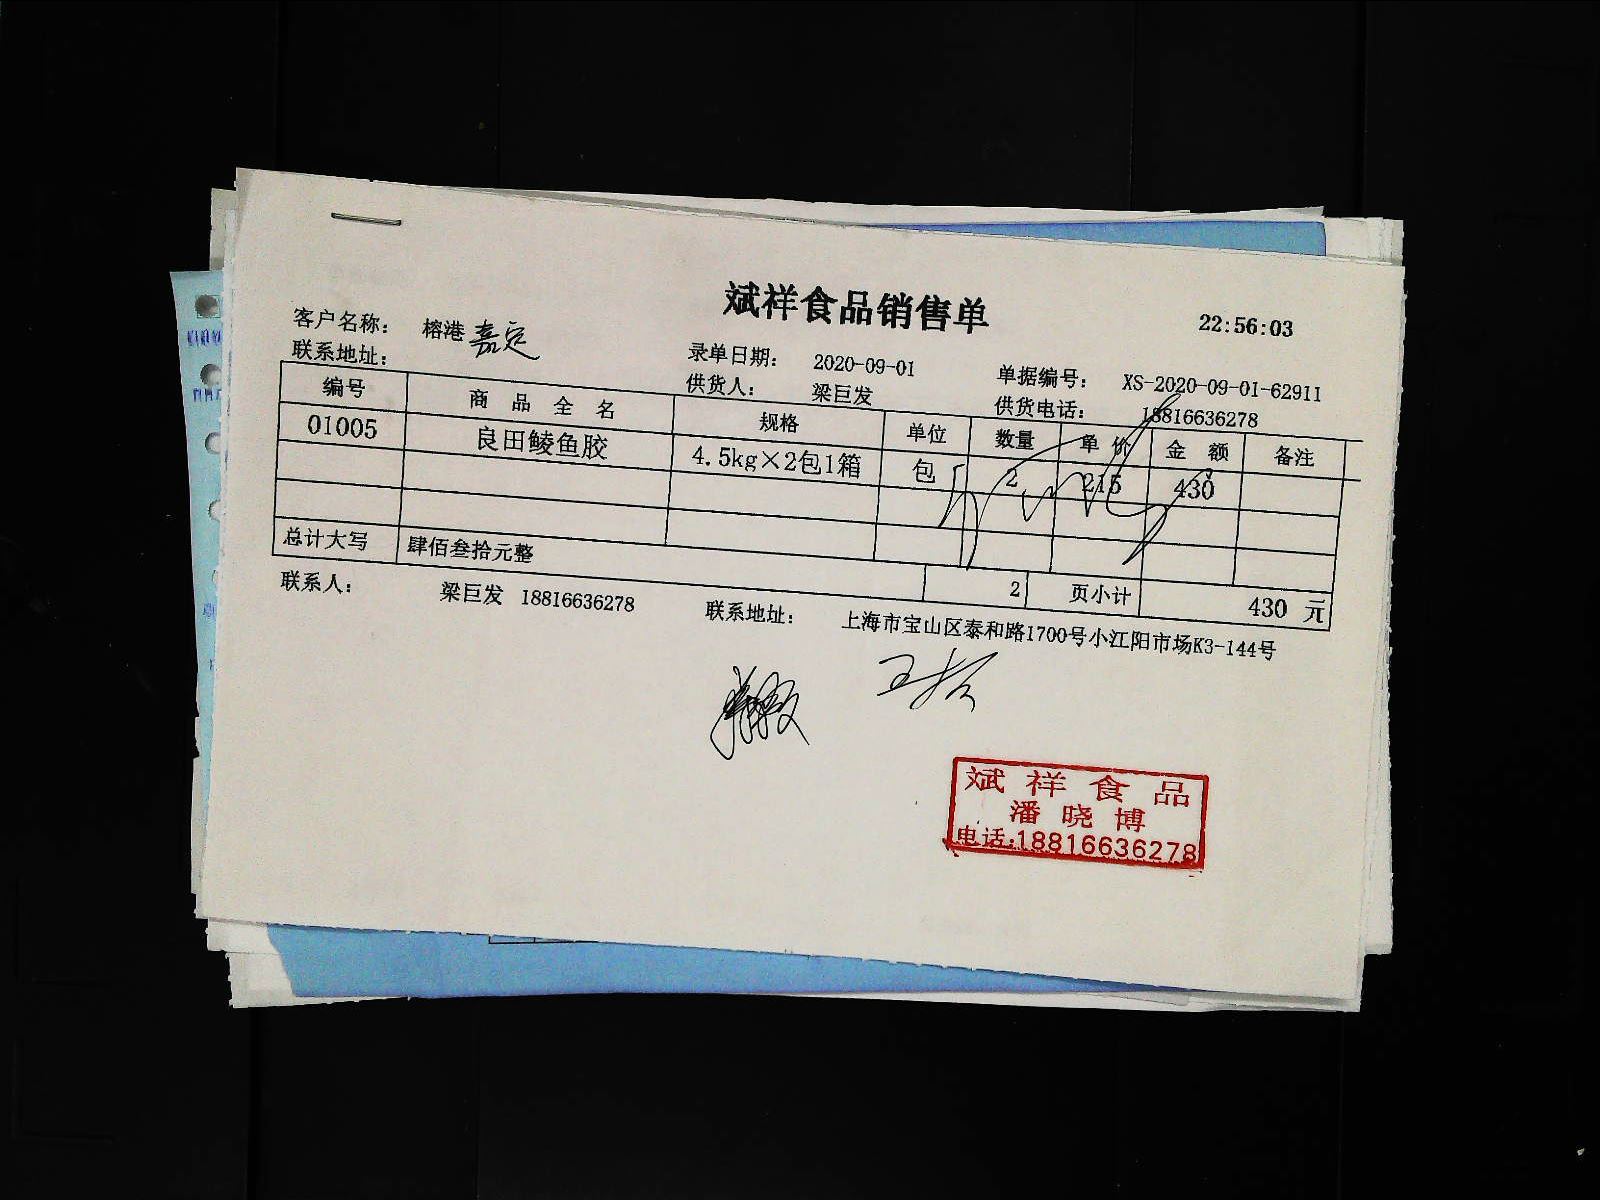 斌祥食品销售单
22:56:03
客户名称： 榕港 嘉定 录单日期： 2020-09-01 单据编号： XS-2020-09-01-62911
联系地址： 供货人： 梁巨发 供货电话： 18816636278
编号 商品全名 规格 单位 数量 单价 金额 备注
01005 良田鲮鱼胶 4.5kg×2包1箱 包 2 215 430
总计大写 肆佰叁拾元整 2 页小计 430 元
联系人： 梁巨发 18816636278 联系地址： 上海市宝山区泰和路1700号小江阳市场K3-144号
斌祥食品
潘晓博
电话:18816636278